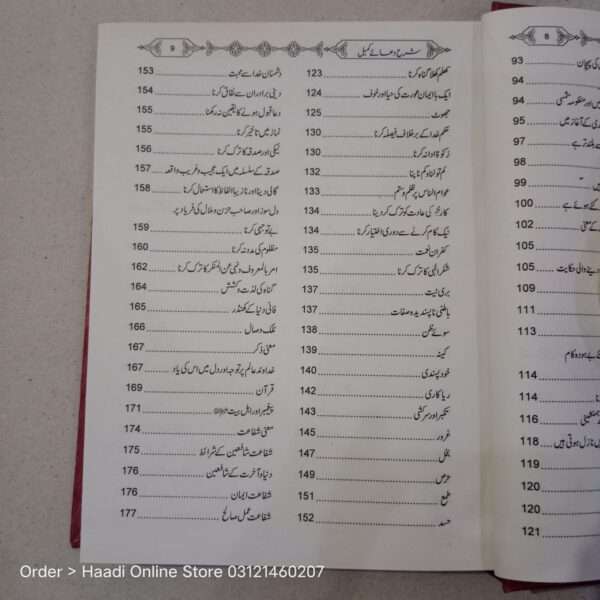 شرح دعائے کمیل
9
کھلم کھلا گناہ کرنا 123
ایک باایمان عورت کی حیا اور خوف 124
جھوٹ 125
حکم خدا کے برخلاف فیصلہ کرنا 130
زکوٰۃ ادا نہ کرنا 130
کم تولنا و کم ناپنا 132
عوام الناس پر ظلم و ستم 133
کارِ خیر کی عادت کو ترک کر دینا 134
نیک کام کرنے سے دوری اختیار کرنا 134
کفران نعمت 135
شکر الٰہی کا ترک کرنا 135
بری نیت 137
باطنی ناپسندیدہ صفات 137
سوئے ظن 138
کینہ 139
خود پسندی 140
ریا کاری 142
تکبر اور سرکشی 143
غرور 145
بخل 147
حرص 149
طمع 151
حسد 152
دشمنان خدا سے محبت 153
دینی برادران سے نفاق کرنا 154
دعا قبول ہونے کا یقین نہ رکھنا 155
نماز میں تاخیر کرنا 155
نیکی اور صدقہ کا ترک کرنا 156
صدقہ کے سلسلہ میں ایک عجیب و غریب واقعہ 157
گالی دینا اور نازیبا الفاظ کا استعمال کرنا 158
دل سوز اور صاحب حزن و ملال کی فریاد پر
بے توجہی کرنا 159
مظلوم کی مدد نہ کرنا 160
امر بالمعروف و نہی عن المنکر کا ترک کرنا 162
گناہ کی لذت و کشش 164
فانی دنیا کے کھنڈر 165
ملک وصال 166
معنی ذکر 167
خداوند عالم پر توجہ اور دل میں اس کی یاد 167
قرآن 169
پیغمبر اور اہل بیت 171
معنی شفاعت 174
شفاعت شافعین کے شرائط 175
دنیا و آخرت کے شافعین 176
شفاعت ایمان 176
شفاعت عمل صالح 177
8
کی پہچان 93
94
اور منظومہ شمسی 94
کے آغاز میں 95
بلند تر ہے 97
98
99
ہوئے ہے 100
کے معنی 102
105
دینے والی حکایت 105
109
111
113
بے ہودہ کام
114
114
116
میں نازل ہوتی ہیں 118
119
120
121
Order > Haadi Online Store 03121460207